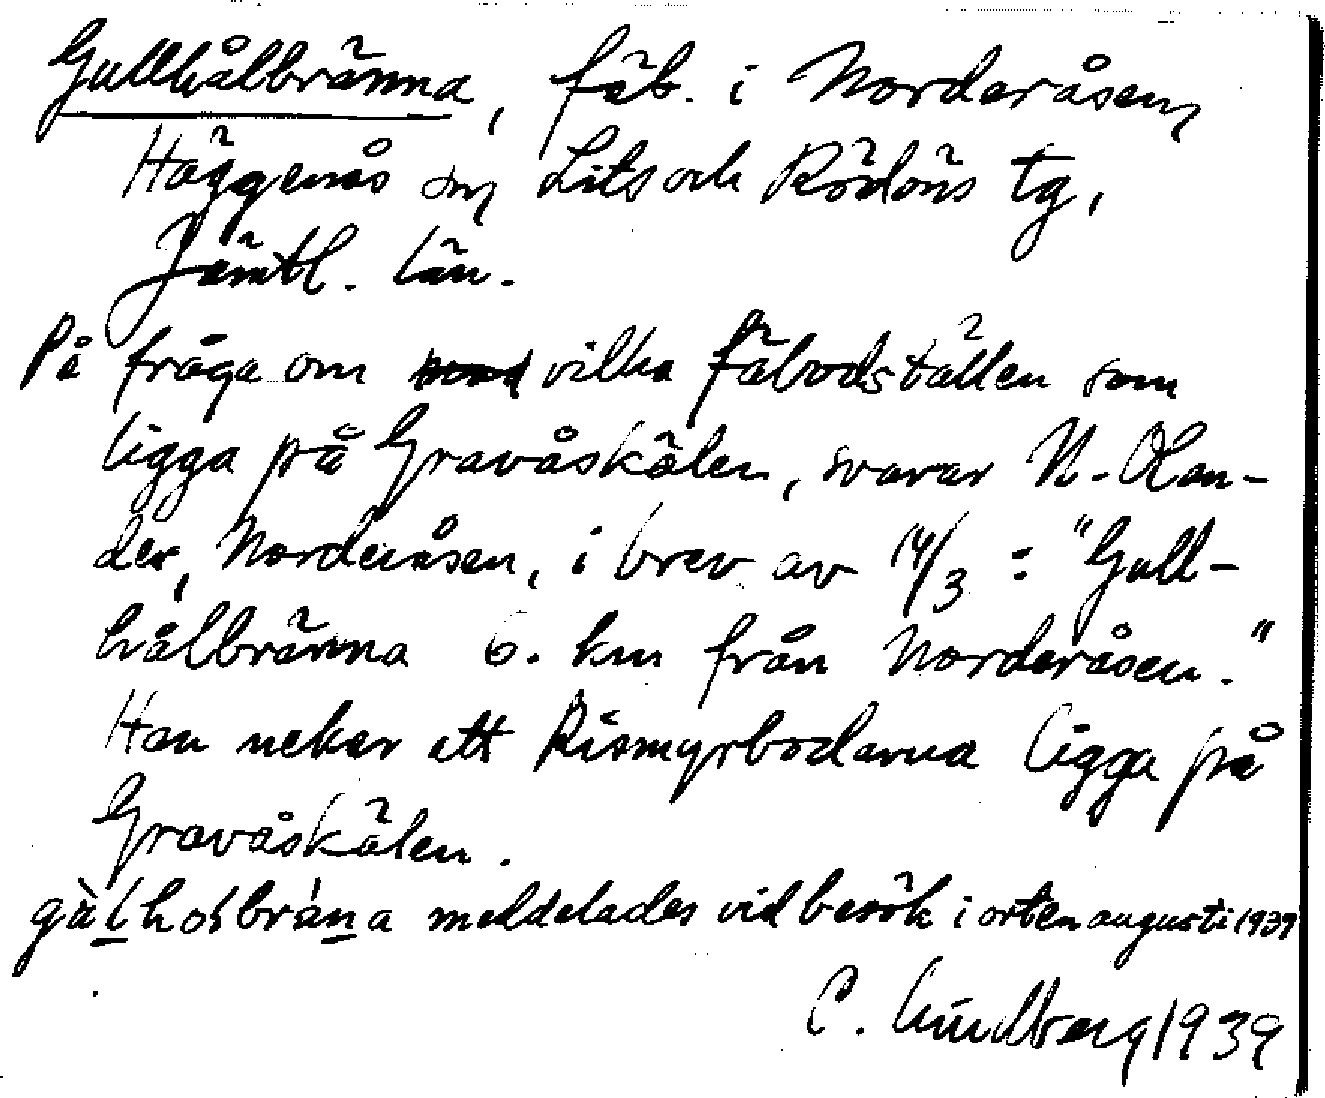 Gullhålbränna, fäb. i Norderåsen,
Häggenås sn, Lits och Rödöns tg,
Jämtl. län.
På fråga om vilka fäbodställen som
ligga på Gravåskälen, svarar N. Olan-
der, Norderåsen, i brev av 14/3 : "Gull-
hålbränna 6. km från Norderåsen."
Han nekar att Rismyrbodarna ligga på
Gravåskälen.
meddelades vid besök i orten augusti 1939
C. Lindberg 1939